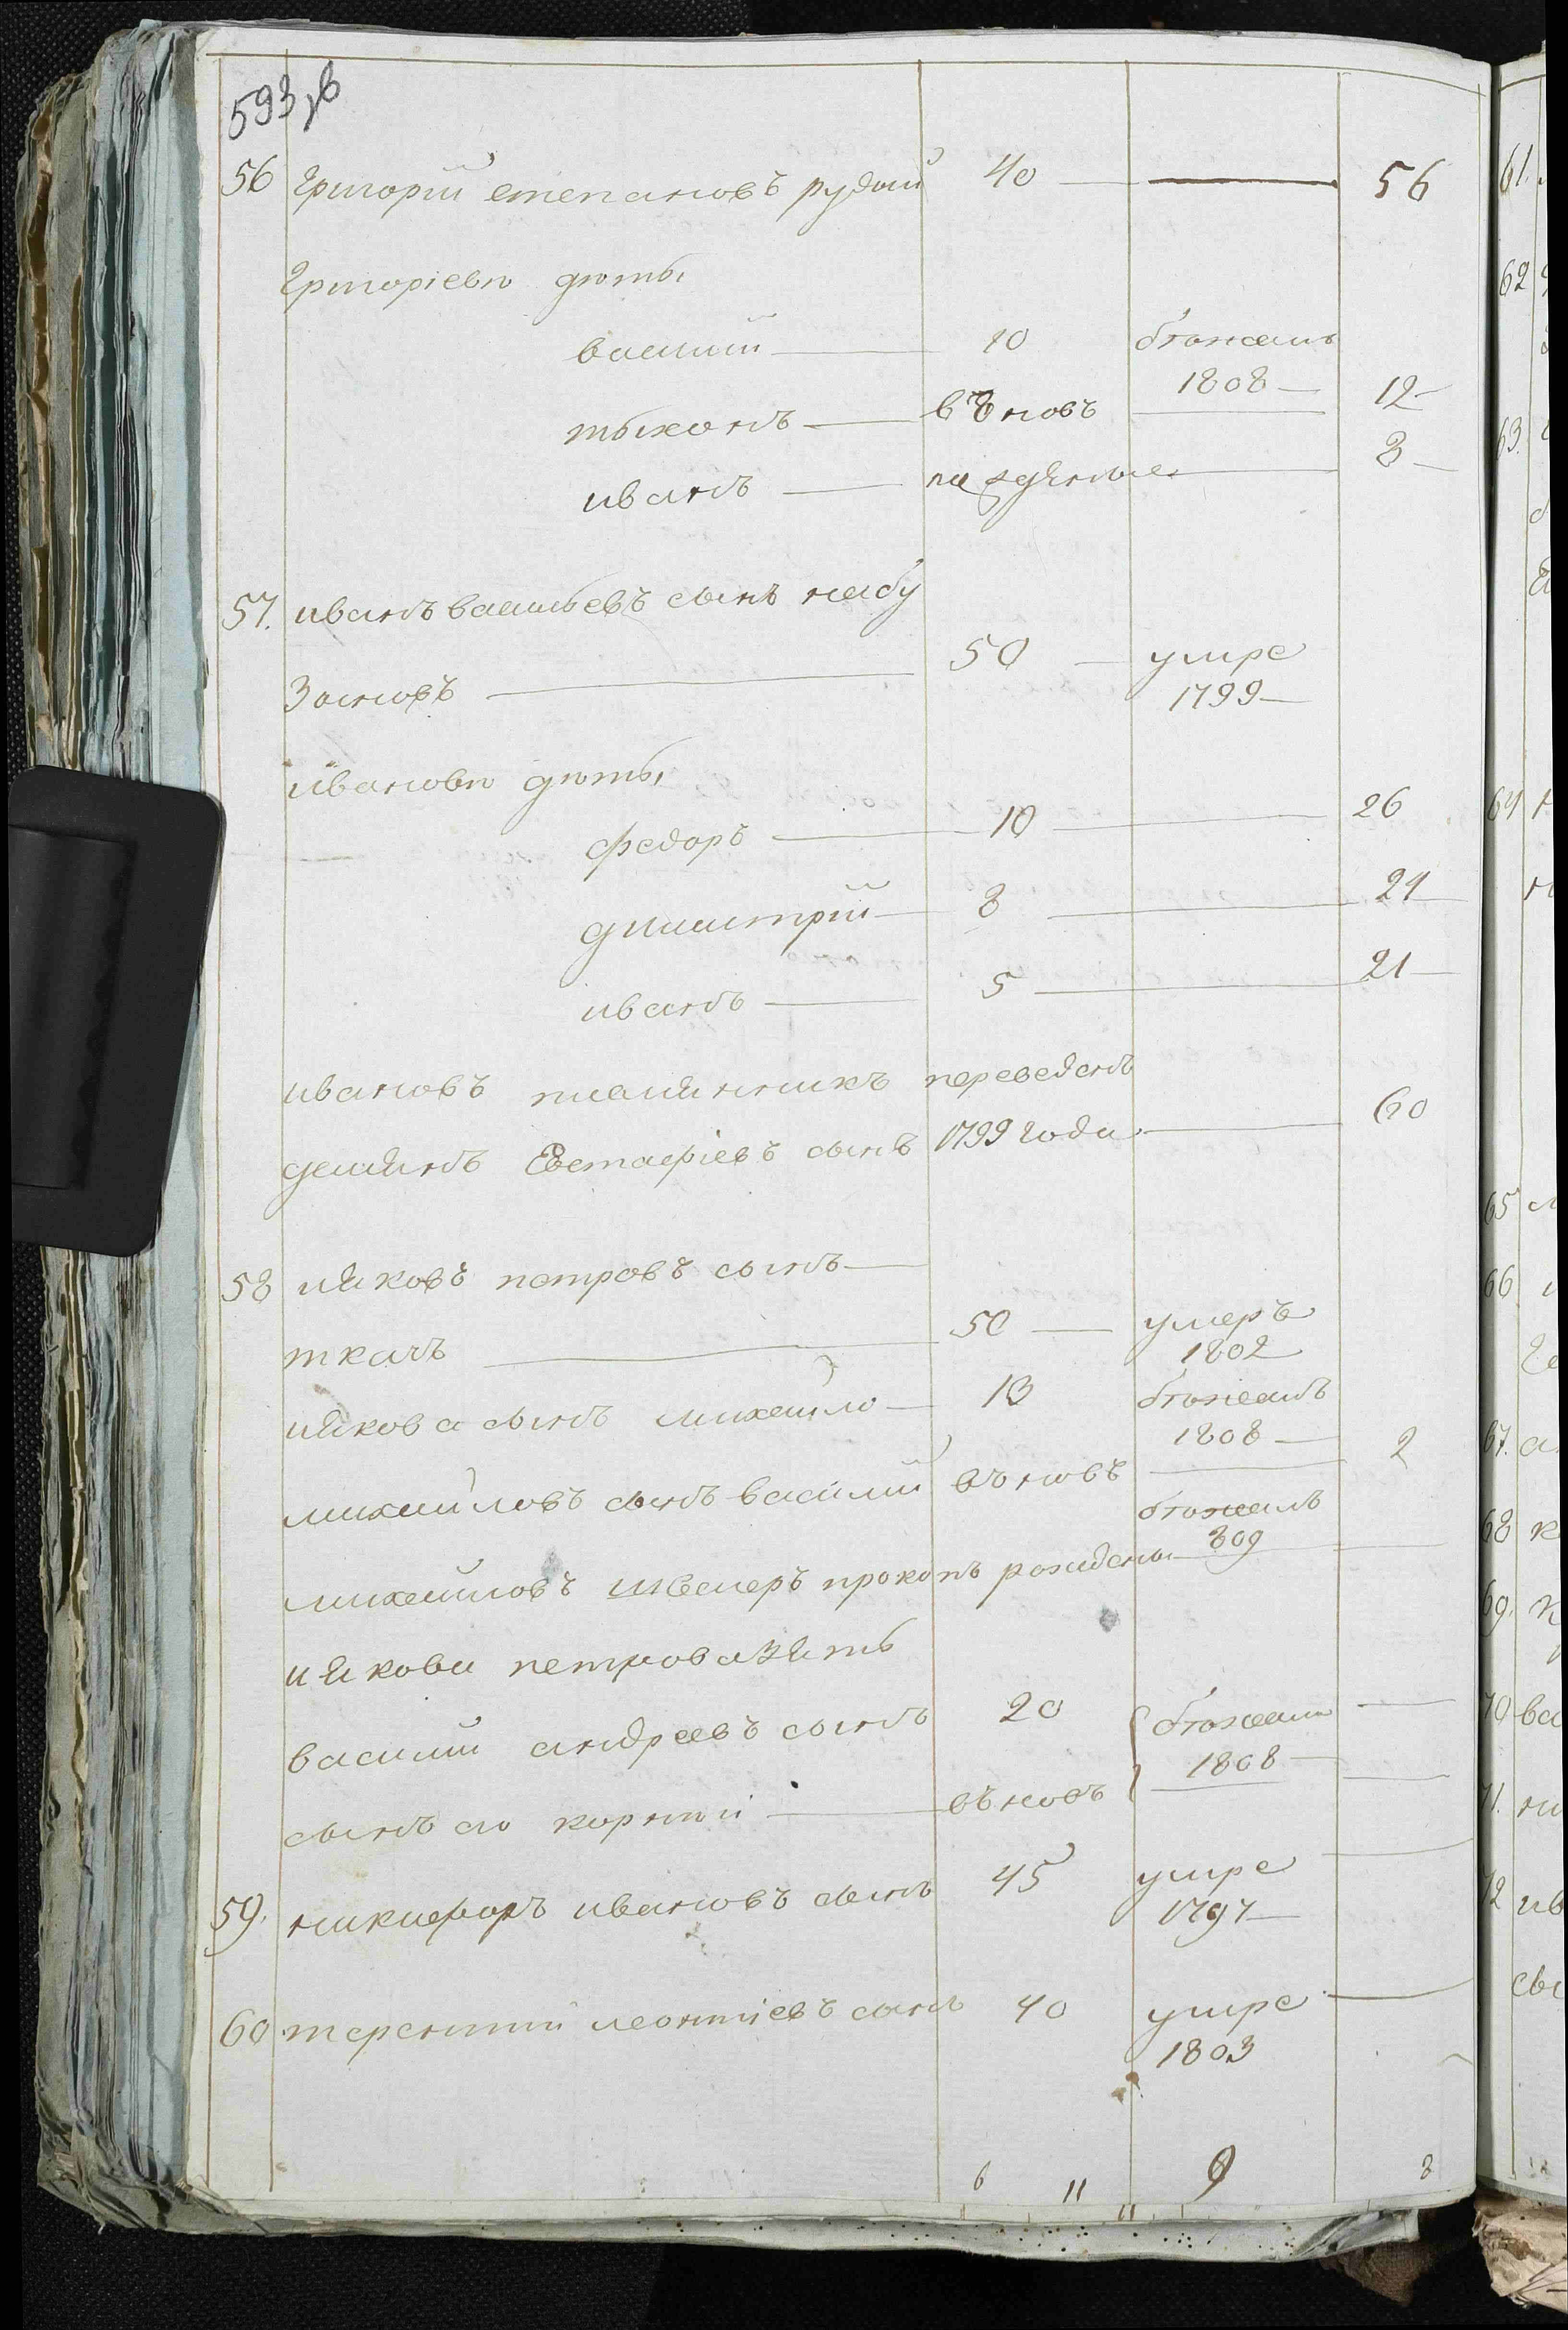 593,в
56 Григорій степановъ рудый 40 — — 56
Григоріевы дѣты
василий — 10 бѣжалъ
1808 —
тыхонъ — въновъ — 12 —
иванъ — рожденые — 8 —
57. иванъ васильевъ сынъ набу
зановъ — 50 — умре
1799 —
Ивановы дѣты
федоръ — 10 — 26
димитрій — 8 — 24
иванъ — 5 — 21 —
ивановъ племянникъ переведенъ
демянъ Евстафіевъ сынъ 1799 года — 60
58 ияковъ петровъ сынъ —
ткачъ — 50 — умеръ
1802
иякова сынъ михайло — 13 бѣжалъ
1808 —
михайловъ сынъ василий въновъ — 2
бѣжалъ
809
михайловъ шваеръ прокопъ рождены —
иякова петрова зять
василий андреевъ сынъ 20 бѣжали —
1808 —
сынъ его корній — въновъ —
59. никифоръ ивановъ сынъ 45 умре —
1797 —
60 терентий леонтиевъ сынъ 40 умре —
1803
6 11 9 8
11
61.
62
63.
64
65
66
67.
68
69.
70 ва
71.
72 ив
сы